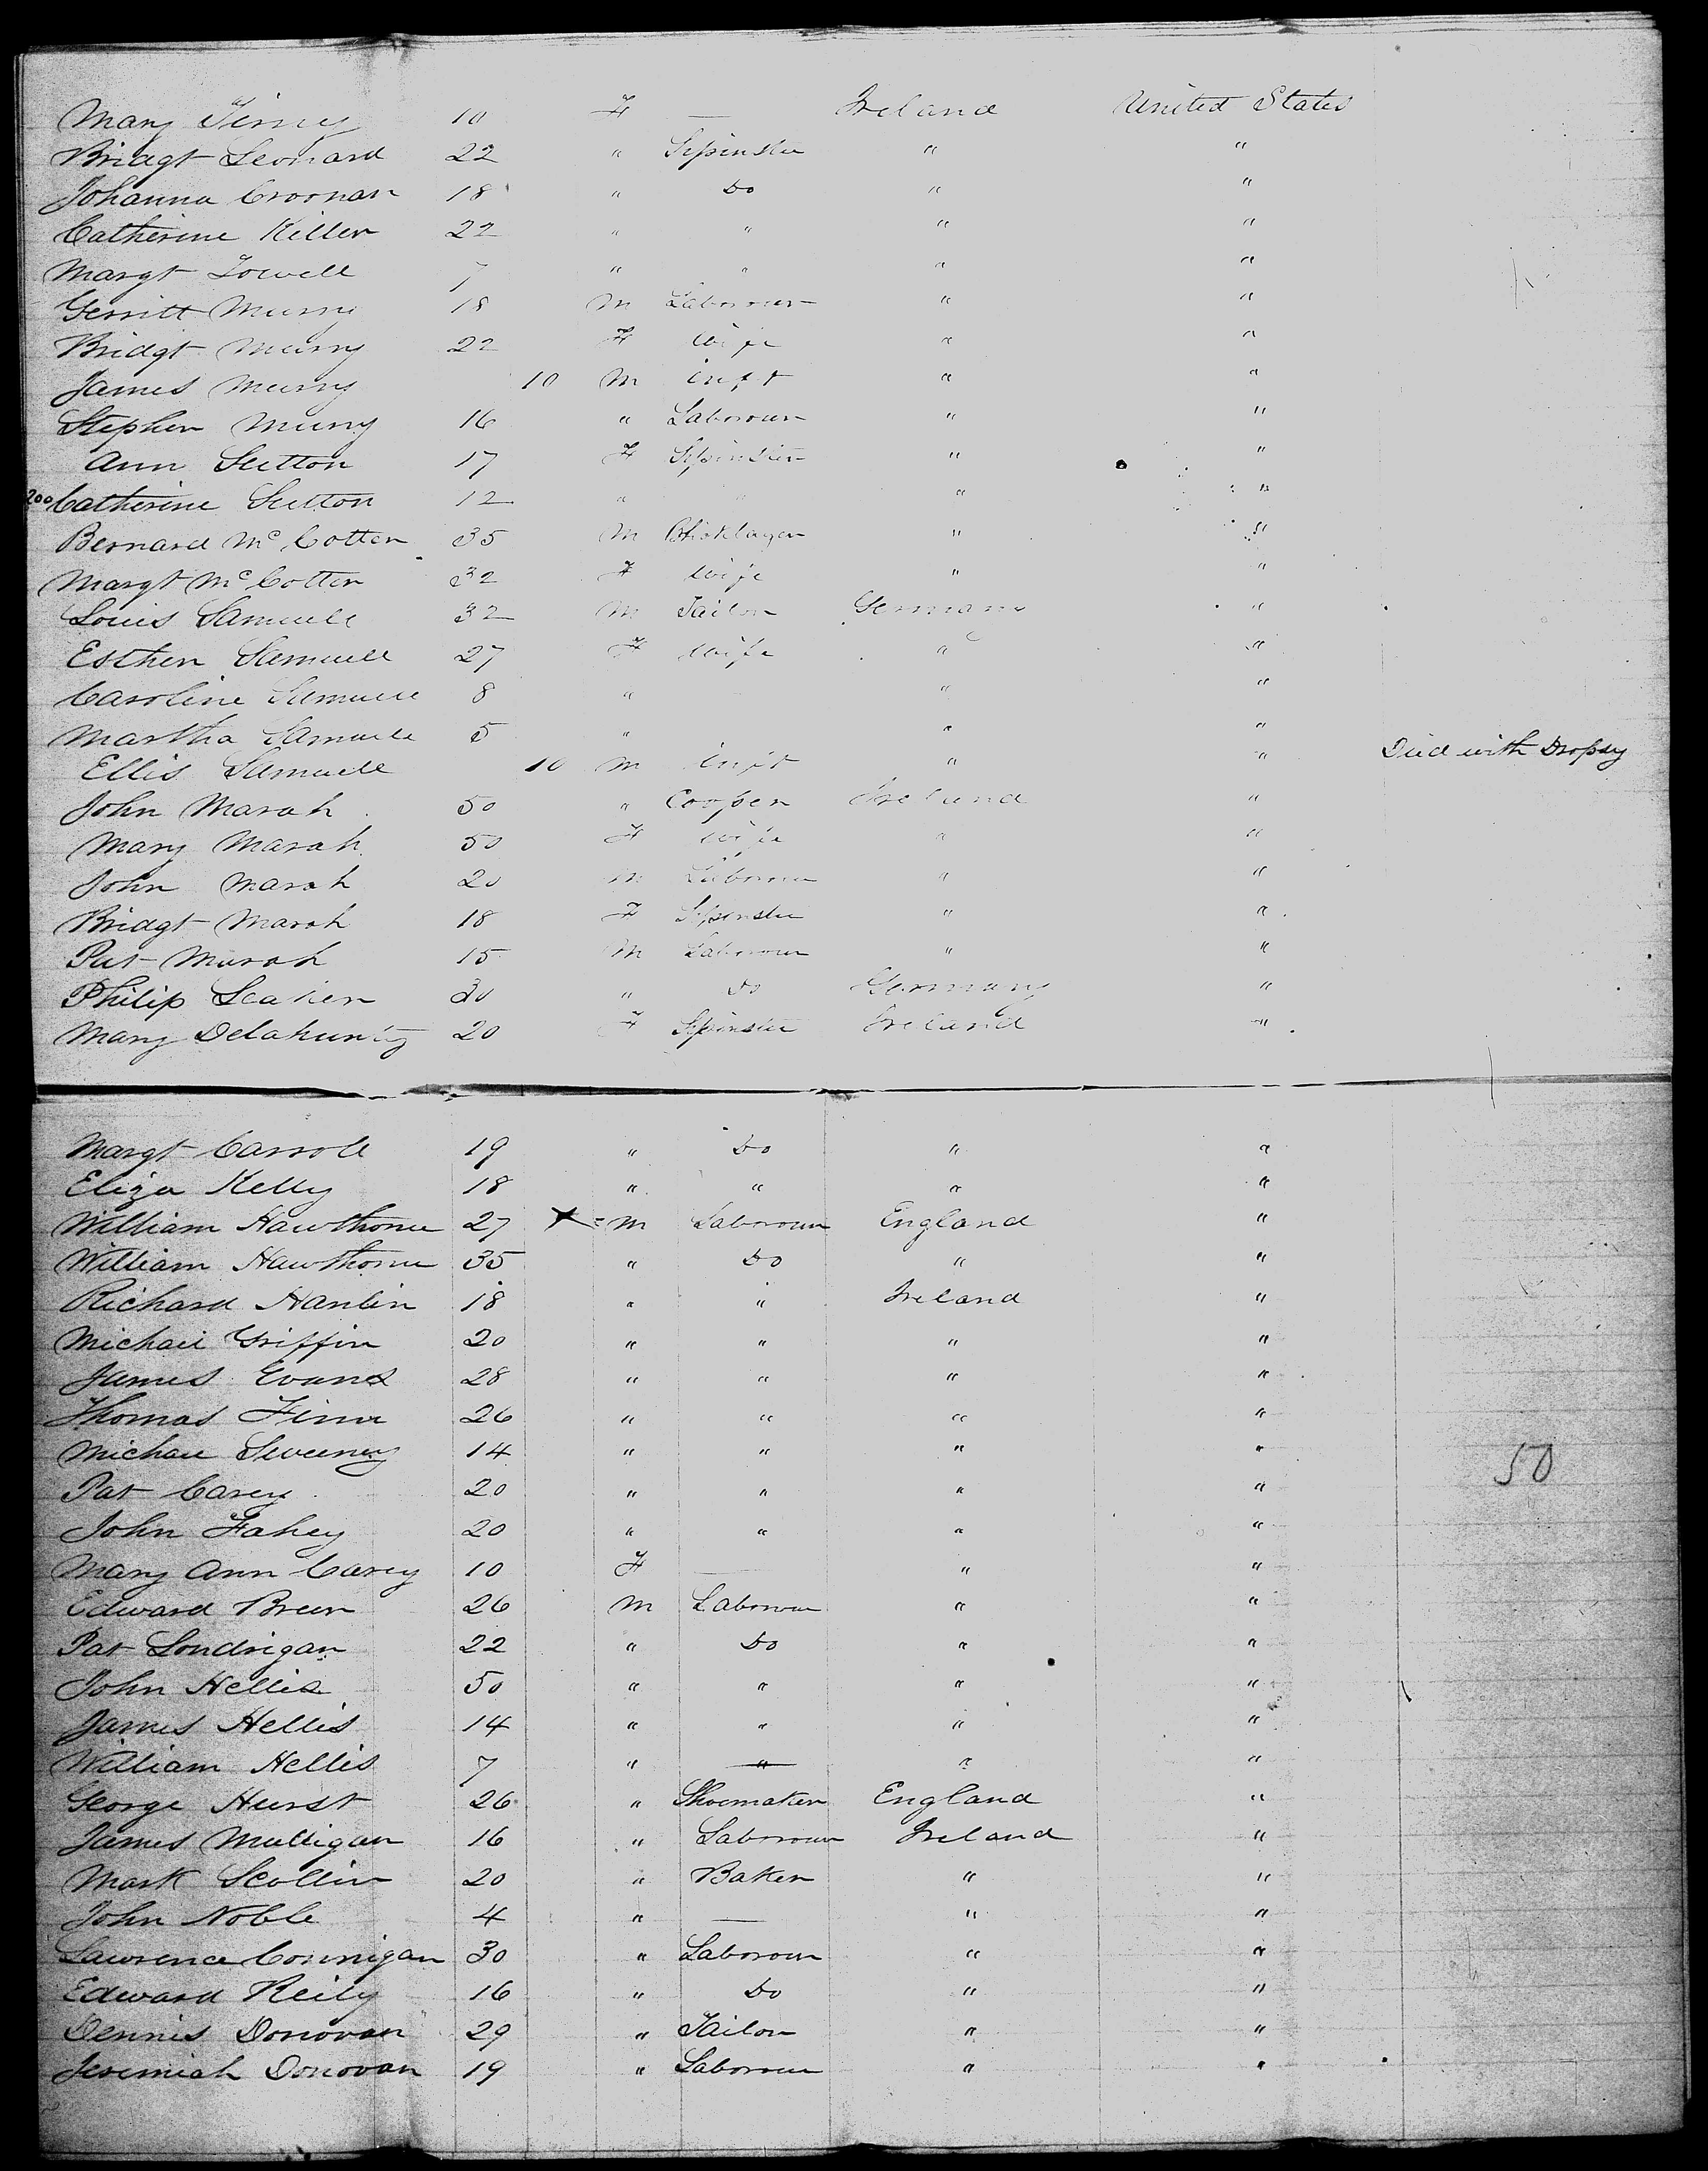 Mary 10 F — Ireland United States
Bridgt Leonard 22 " Spinster " "
Johanna Croonan 18 " Do " "
Catherine Killen 22 " " " "
Margt Towell 7 " " " "
Gerritt Murry 18 M Labourer " "
Bridgt Murry 22 F Wife " "
James Murry 10 M Inft " "
Stephen Murry 16 " Labourer " "
Ann Sutton 17 F Spinster " "
200 Catherine Sutton 12 " " "
Bernard McCotter 35 M " "
Margt McCotter 32 F Wife " "
Louis Samuell 32 M Tailor Germany "
Esther Samuell 27 F Wife " "
Caroline Samuell 8 " " "
Martha Samuell 5 " " "
Ellis Samuell 10 M Inft " " Died with Dropsy
John Marah 50 " Cooper Ireland "
Mary Marah 50 F Wife " "
John Marah 20 M Labourer " "
Bridgt Marah 18 F Spinster " "
Pat Marah 15 M Labourer " "
Philip Seaker 30 " Do Germany "
Mary Delahunty 20 F Spinster Ireland "
Margt Carroll 19 " Do " "
Eliza Kelly 18 " " " "
William Hawthorne 27 X M Labourer England "
William Hawthorne 35 " Do " "
Richard Hanlin 18 " " Ireland "
Michael Griffin 20 " " " "
James Evans 28 " " " "
Thomas Finn 26 " " " "
Michael Sweeney 14 " " " "
50
Pat Carey 20 " " " "
John Fahey 20 " " " "
Mary Ann Carey 10 F — " "
Edward Breen 26 M Labourer " "
Pat Londrigan 22 " Do " "
John Hellis 50 " " " "
James Hellis 14 " " " "
William Hellis 7 " " " "
George Hurst 26 " Shoemaker England "
James Mulligan 16 " Labourer Ireland "
Mark Scollin 20 " Baker " "
John Noble 4 " — " "
Lawrence Connigan 30 " Labourer " "
Edward Reily 16 " Do " "
Dennis Donovan 29 " Tailor " "
Jeremiah Donovan 19 " Labourer " "